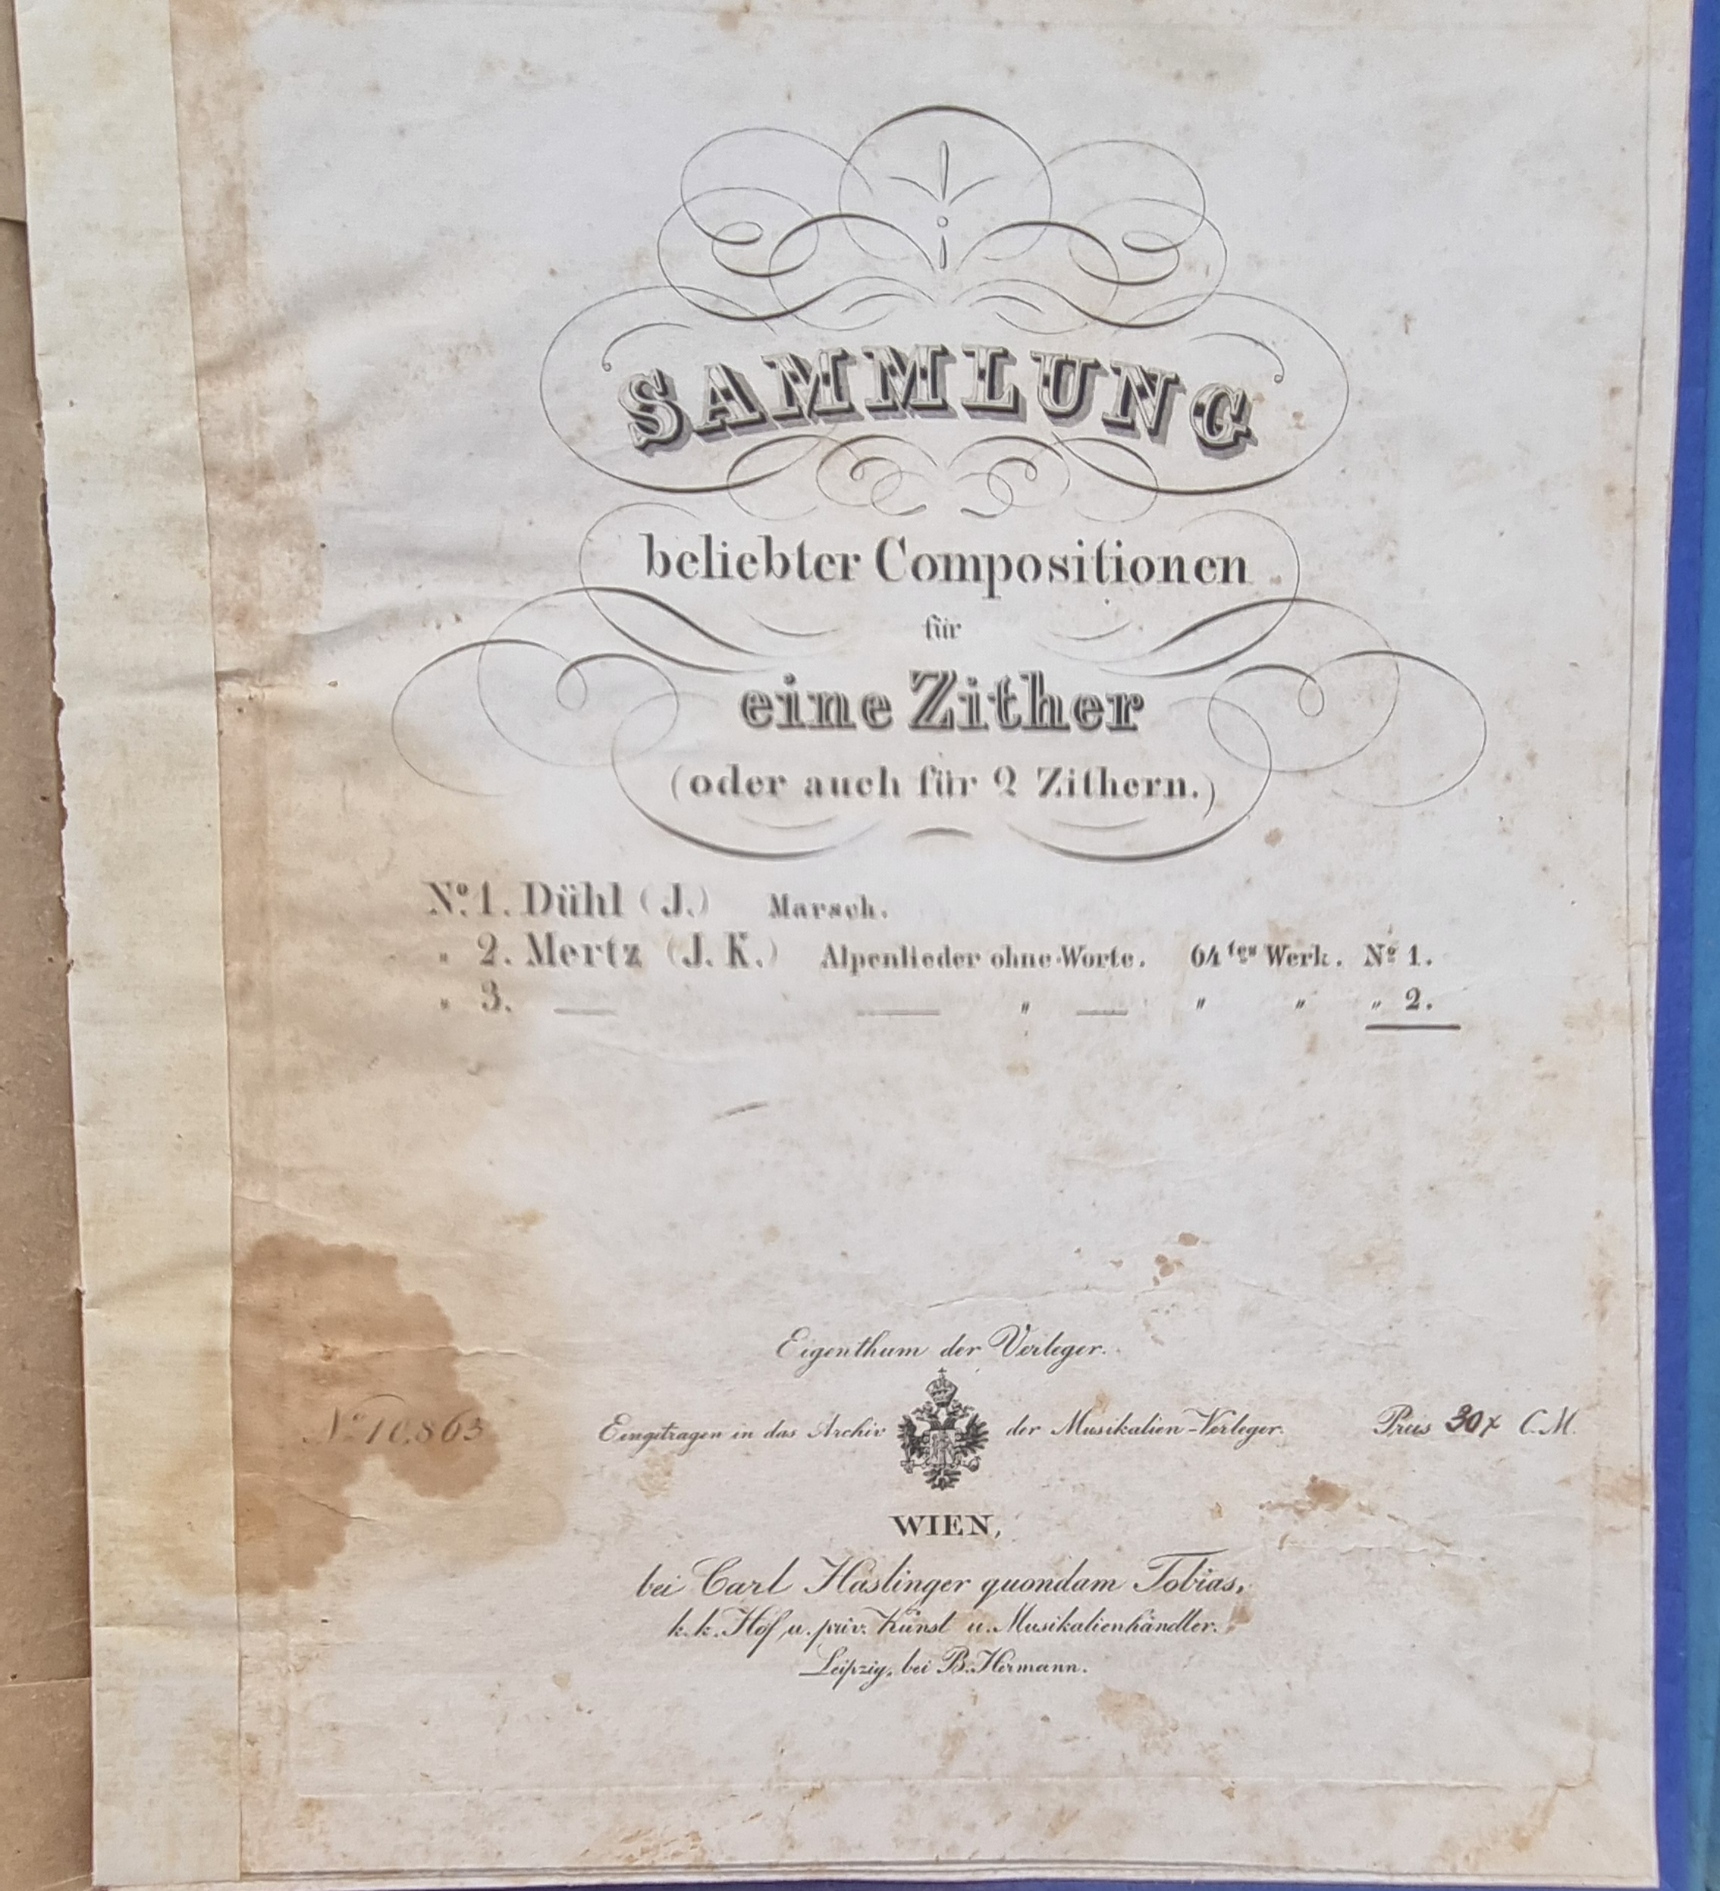 SAMMLUNG
beliebter Compositionen
für
eine Zither
(oder auch für 2 Zithern.)
No. 1. Dühl (J.) Marsch.
" 2. Mertz (J. K.) Alpenlieder ohne Worte. 64tes Werk. No 1.
" 3. — — " — " " " 2.
Eigenthum der Verleger.
No 10,863 Eingetragen in das Archiv der Musikalien-Verleger. Preis 30x C.M.
WIEN,
bei Carl Haslinger quondam Tobias,
k. k. Hof u. priv. Kunst u. Musikalienhändler.
Leipzig, bei B. Hermann.